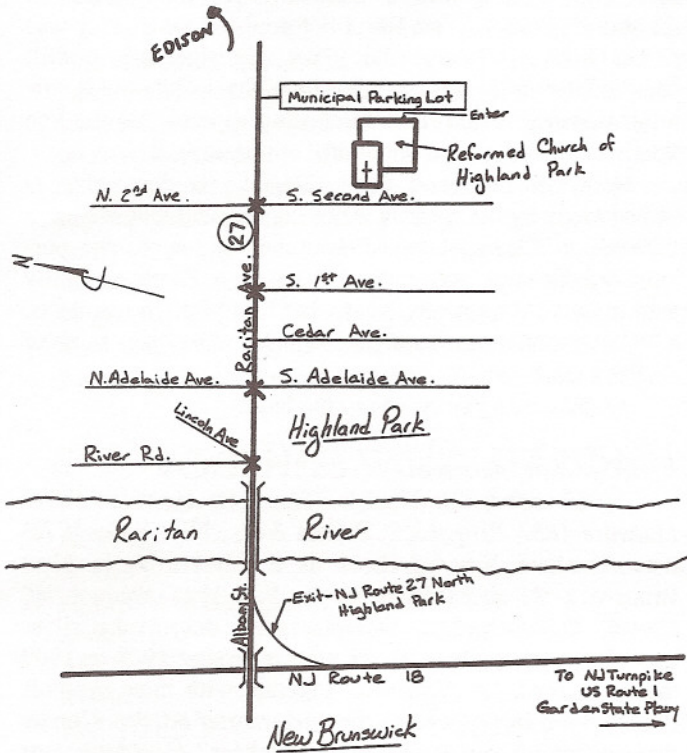 EDISON
Municipal Parking Lot
Enter
Reformed Church of
Highland Park
N. 2nd Ave.
S. Second Ave.
27
N
Raritan Ave.
S. 1st Ave.
Cedar Ave.
N. Adelaide Ave.
S. Adelaide Ave.
Lincoln Ave
Highland Park
River Rd.
Raritan River
Albany St.
Exit-NJ Route 27 North
Highland Park
NJ Route 18
To NJ Turnpike
US Route 1
Garden State Pkwy
New Brunswick